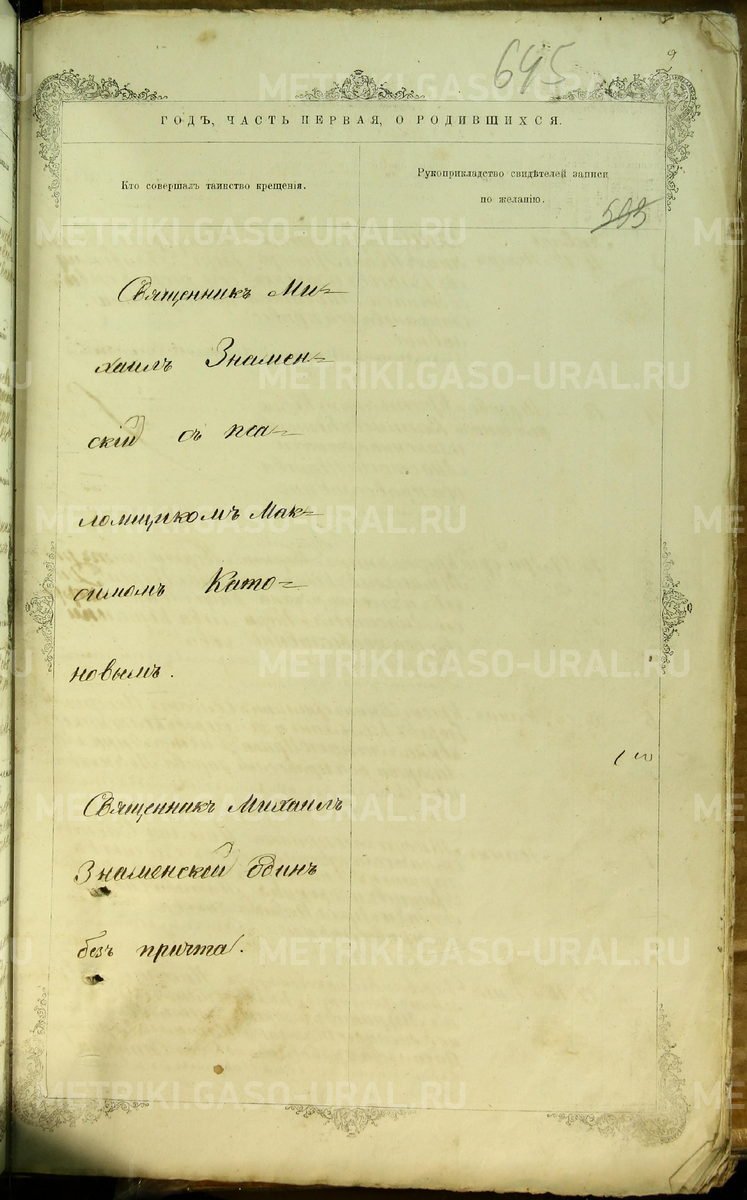 645
2
ГОДЪ, ЧАСТЬ ПЕРВАЯ, О РОДИВШИХСЯ.
Кто совершалъ таинство крещенія.
Рукоприкладство свидѣтелей записи
по желанію.
593
Священникъ Ми=
хаилъ Знамен=
скій съ пса=
ломщикомъ Мак=
симомъ Като=
новымъ.
Священникъ Михаилъ
Знаменской одинъ
безъ причта.
METRIKI.GASO-URAL.RU